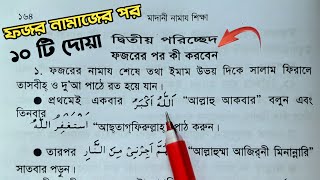 ফজর নামাজের পর
১০ টি দোয়া
১৬৪
মাদানী নামায শিক্ষা
দ্বিতীয় পরিচ্ছেদ
ফজরের পর কী করবেন
১. ফজরের নামায শেষে তথা ইমাম উভয় দিকে সালাম ফিরালে
তাসবীহ ও দু'আ পাঠে রত হয়ে যান।
প্রথমেই একবার اَللّٰهُ اَكْبَرُ "আল্লাহু আকবার" বলুন এবং
তিনবার اَسْتَغْفِرُ اللهَ "আছতাগ্ফিরুল্লাহ্" পাঠ করুন।
তারপর اَللّٰهُمَّ اَجِرْنِىْ مِنَ النَّارِ "আল্লাহুম্মা আজির্নী মিনান্নারি"
সাতবার পড়ুন।